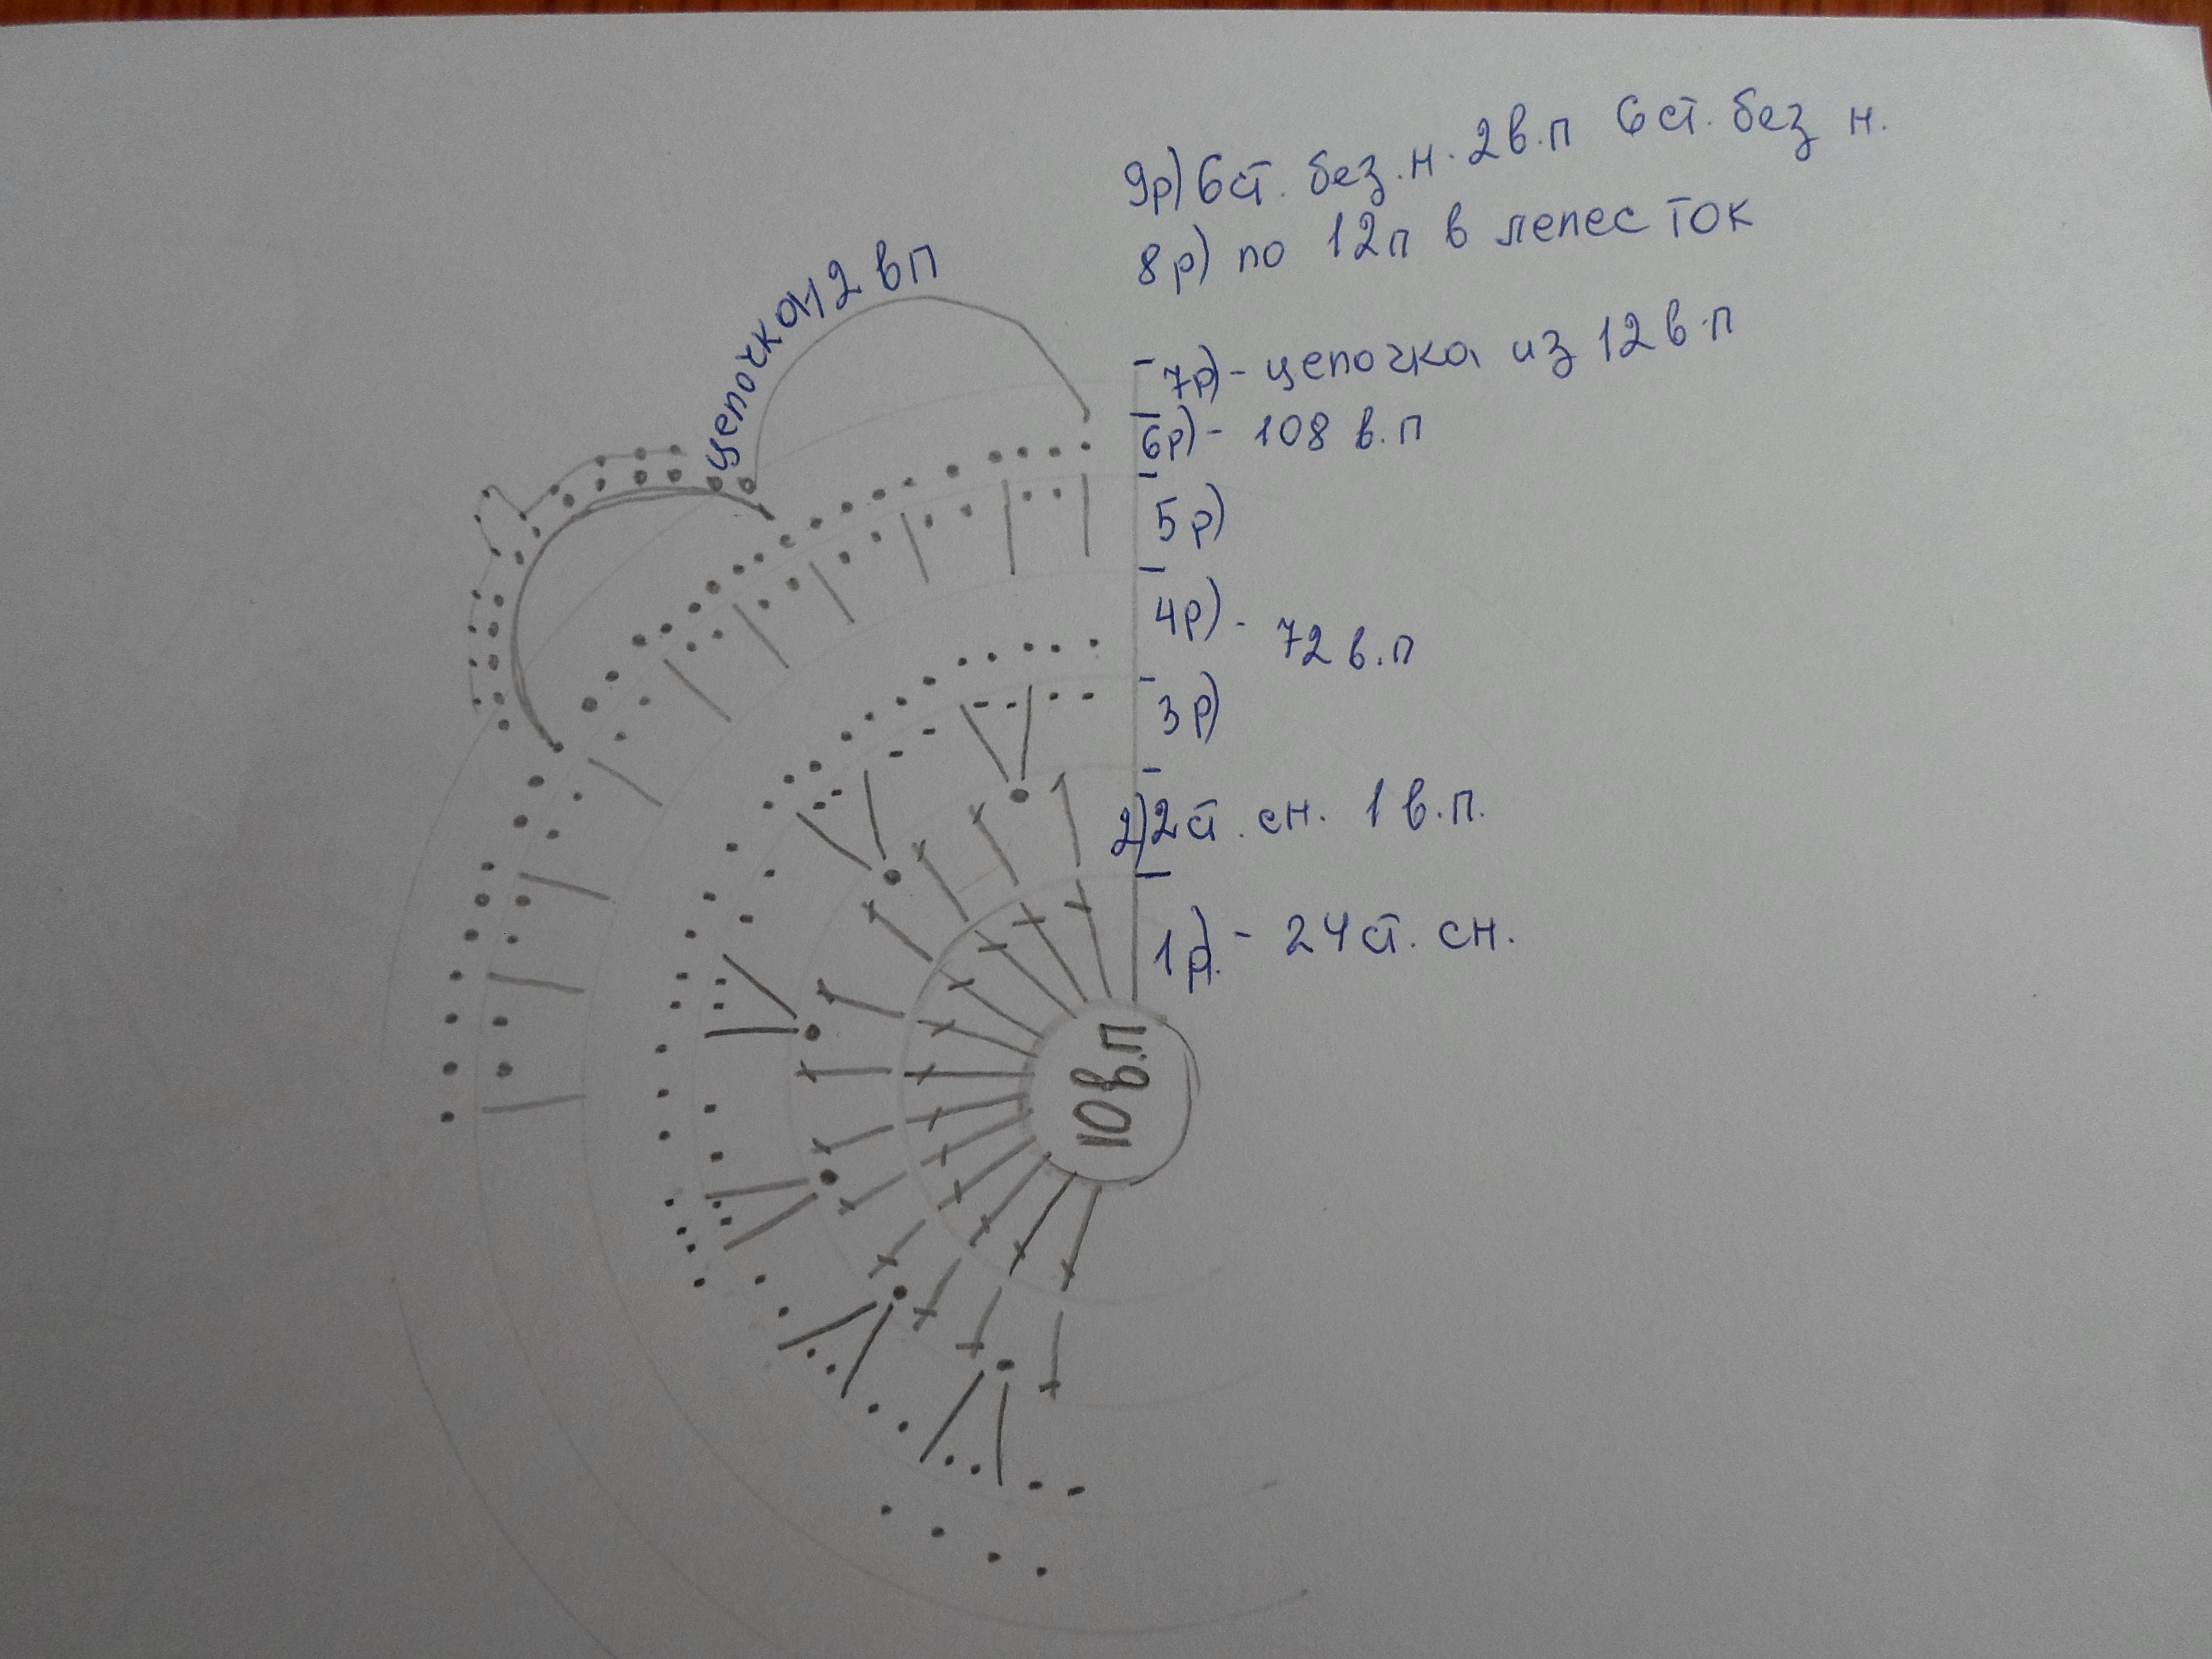 9р) 6 ст. без.н. 2в.п 6 ст. без н.
8р) по 12п в лепесток
цепочка 12 вп
7р) - цепочка из 12 в.п
6р) - 108 в.п
5р)
4р) - 72 в.п
3р)
2) 2 ст. сн. 1 в.п.
1р. - 24 ст. сн.
10 в.п